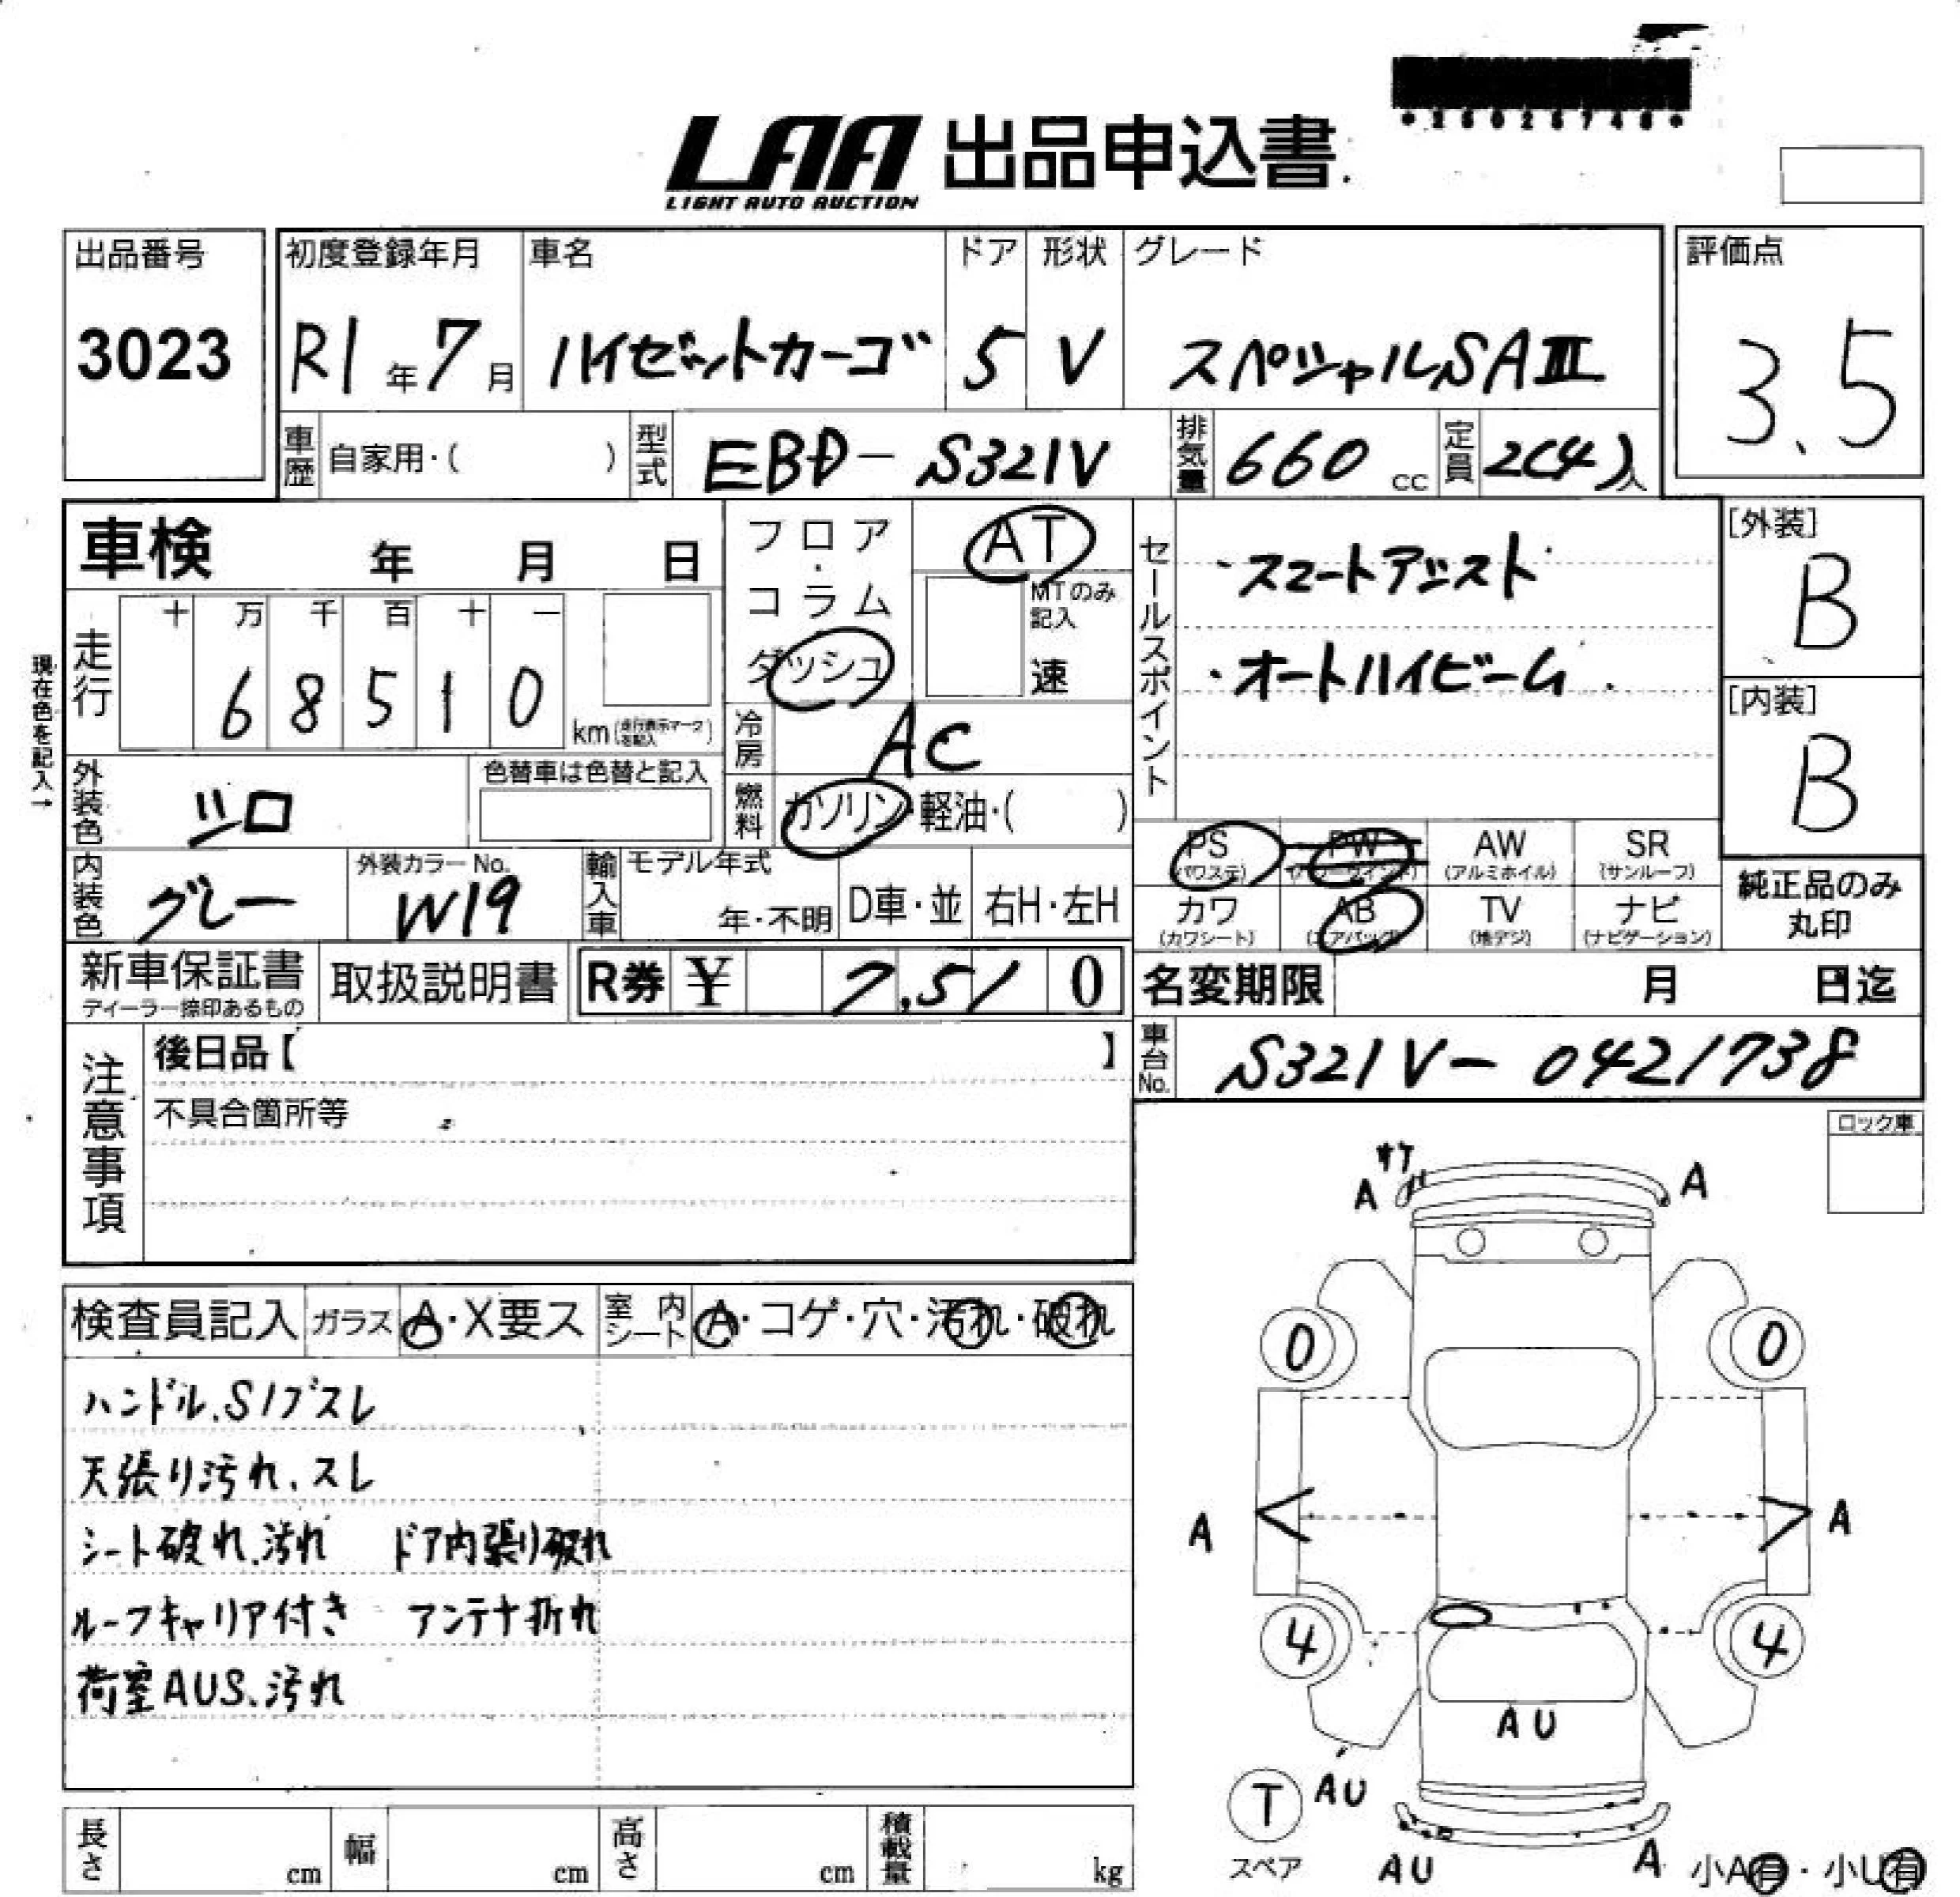 LAA 出品申込書
LIGHT AUTO AUCTION
出品番号
3023
初度登録年月
R1年7月
車名
ハイゼットカーゴ
ドア
5
形状
V
グレード
スペシャルSAIII
評価点
3.5
車歴 自家用・( )
型式 EBD-S321V
排気量 660 cc
定員 2(4)人
車検 年 月 日
フロア・コラム
ダッシュ
AT
MTのみ記入
速
セールスポイント
・スマートアシスト
・オートハイビーム
[外装]
B
[内装]
B
現在色を記入→
走行
十 万 千 百 十 一
6 8 5 1 0
km(走行表示マークを記入)
冷房 AC
外装色 シロ
色替車は色替と記入
燃料 ガソリン・軽油・( )
PS (パワステ)
PW (パワーウインド)
AW (アルミホイル)
SR (サンルーフ)
カワ (カワシート)
AB (エアバッグ)
TV (地デジ)
ナビ (ナビゲーション)
純正品のみ丸印
内装色 グレー
外装カラーNo.
W19
輸入車 モデル年式
年・不明
D車・並
右H・左H
新車保証書
ディーラー捺印あるもの
取扱説明書
R券 ¥ 7,510
名変期限 月 日迄
注意事項
後日品【 】
不具合箇所等
車台No. S321V-0421738
ロック車
検査員記入
ガラス A・X要ス
室内シート A・コゲ・穴・汚れ・破れ
ハンドル、Sノブスレ
天張り汚れ、スレ
シート破れ、汚れ ドア内張り破れ
ルーフキャリア付き アンテナ折れ
荷室AUS、汚れ
サケ
A
A
0
0
A
A
4
4
AU
T
AU
スペア
AU
A
小A有・小U有
長さ cm
幅 cm
高さ cm
積載量 kg